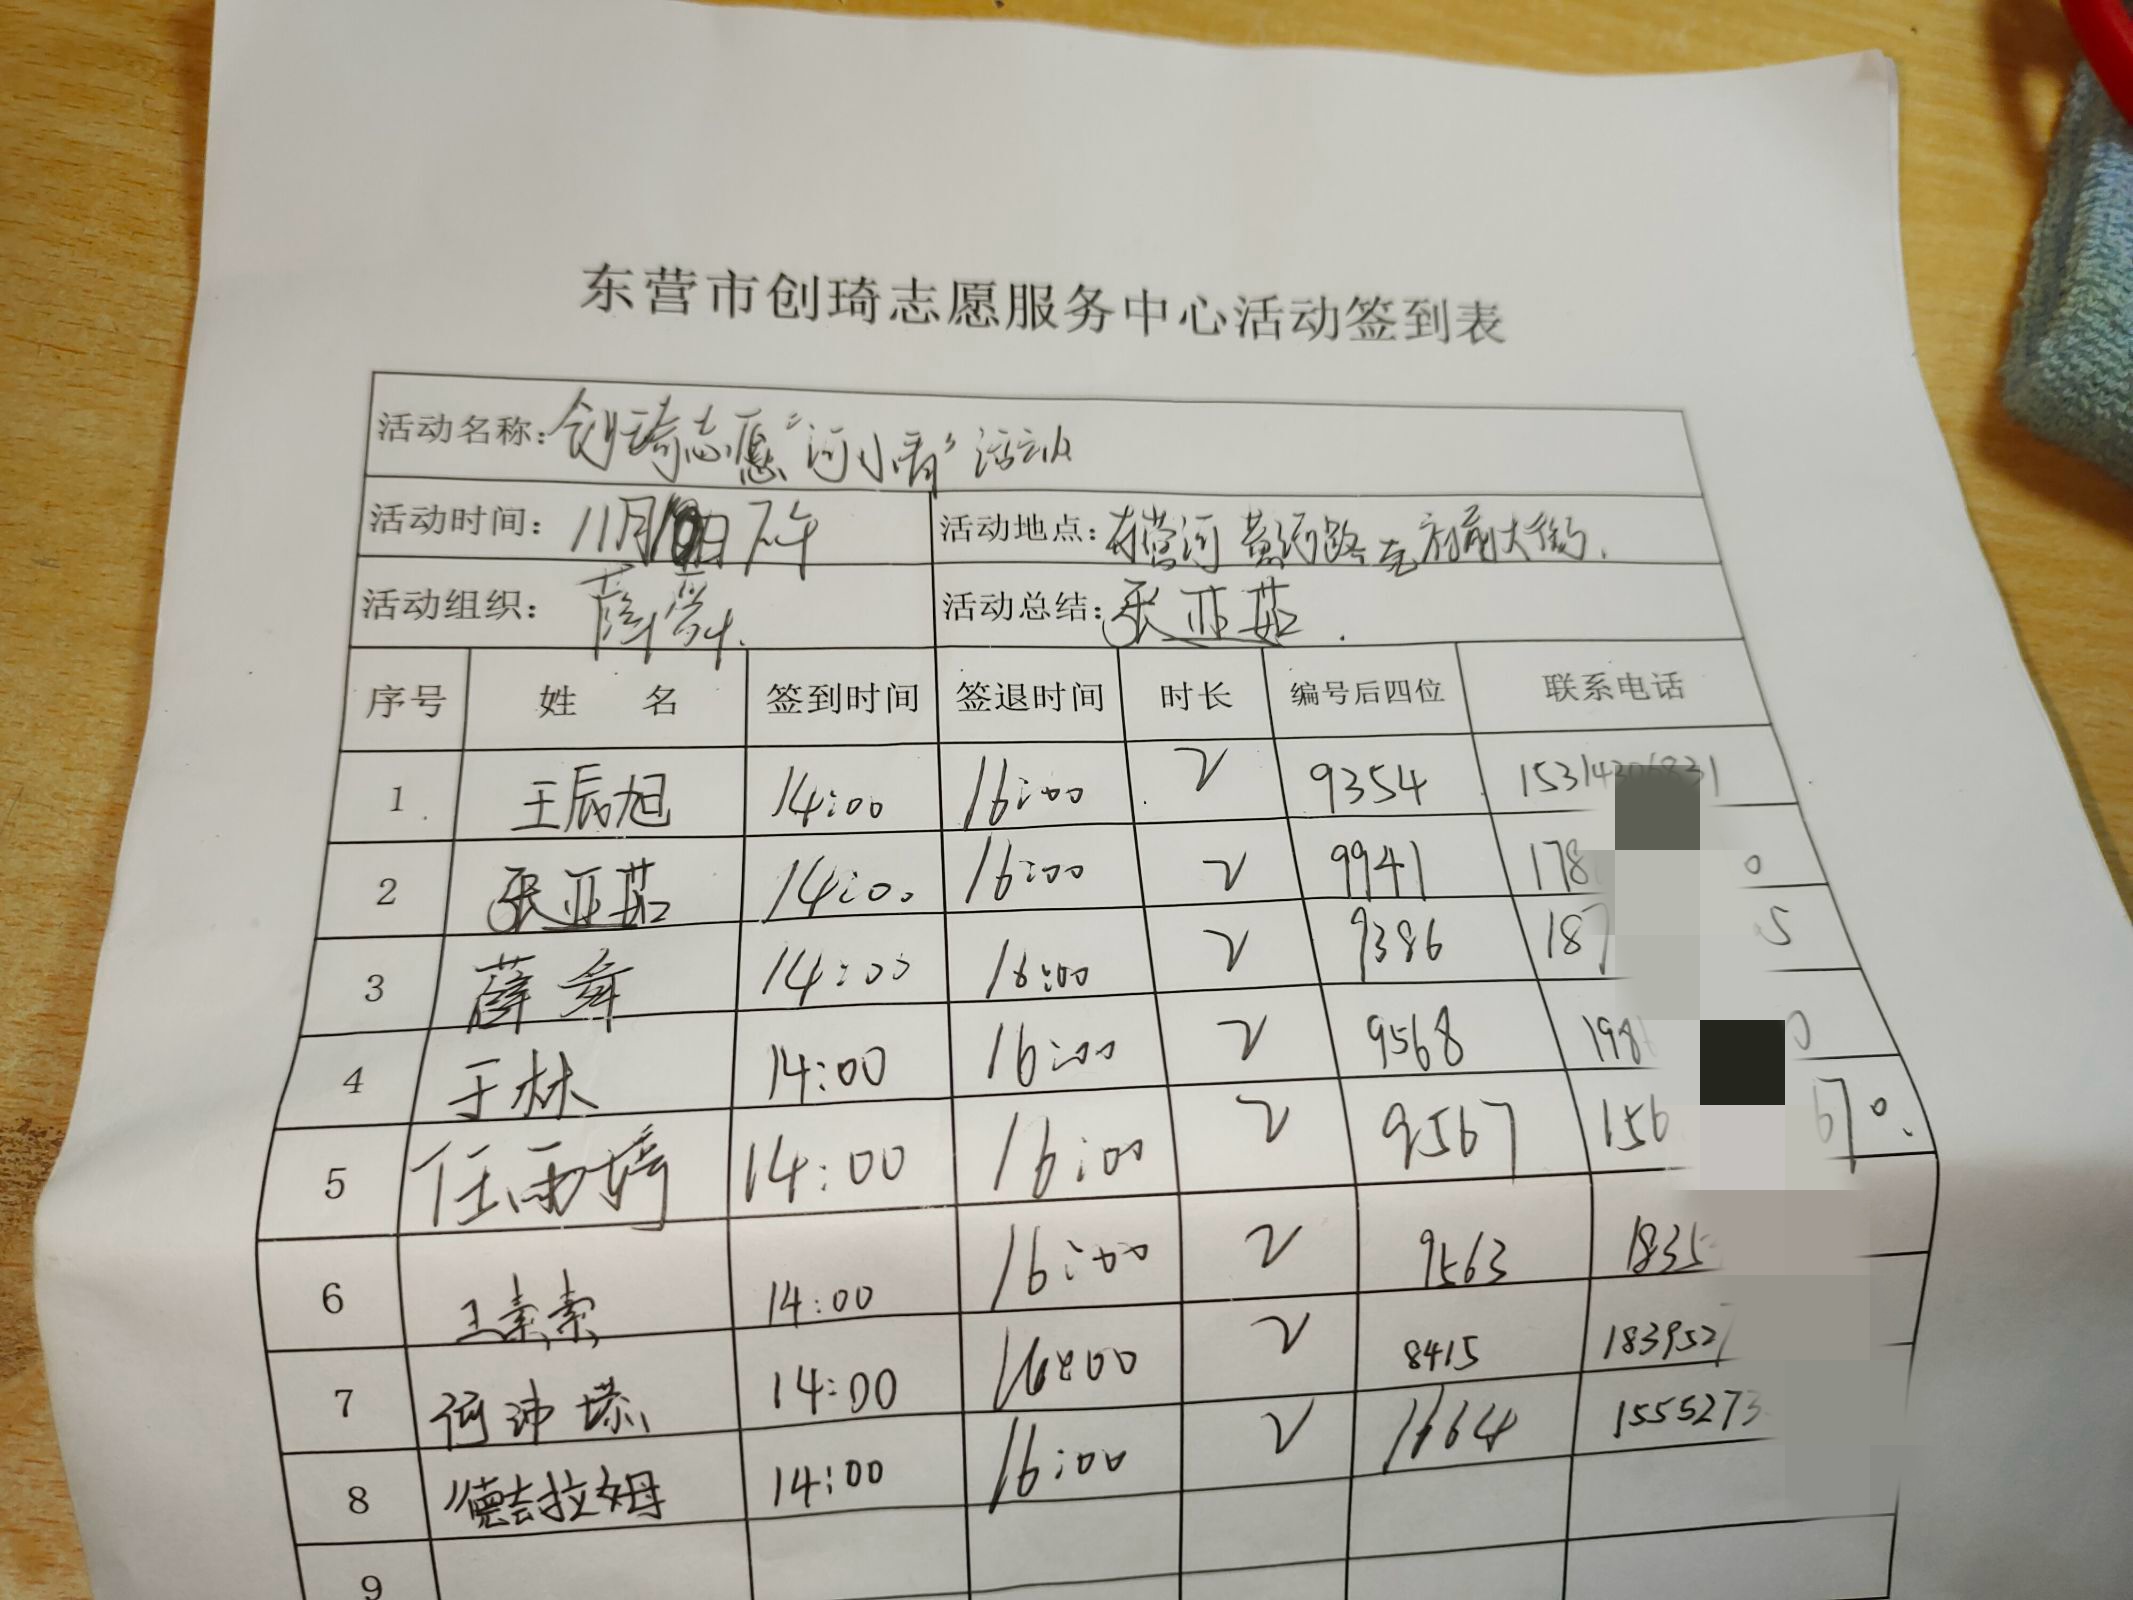 东营市创琦志愿服务中心活动签到表
活动名称：创琦志愿“河小青”活动
活动时间：11月10日下午 活动地点：东营河 黄河路至府前大街.
活动组织：薛 活动总结：张亚茹.
序号 姓 名 签到时间 签退时间 时长 编号后四位 联系电话
1 王辰旭 14:00 16:00 2 9354 15314
2 张亚茹 14:00 16:00 2 9941 178
3 薛 14:00 16:00 2 9386 187
4 于林 14:00 16:00 2 9568 198
5 任雨琦 14:00 16:00 2 9567 156
6 王素素 14:00 16:00 2 9563 1835
7 14:00 16:00 2 8415 1839527
8 德吉拉姆 14:00 16:00 2 1664 1555273
9